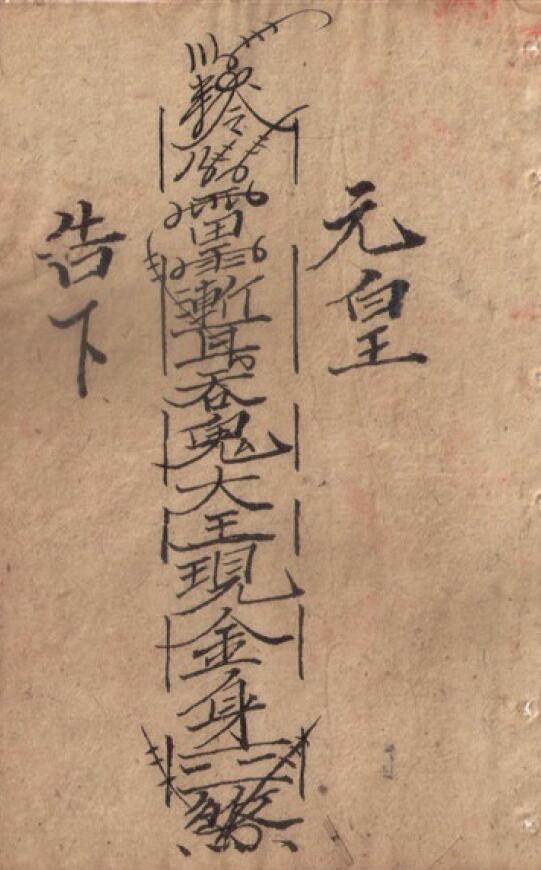 元皇
令雷漸耳吞鬼大王現金身
告下